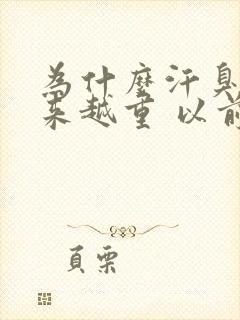 為什麼汗臭
来越重 以前
頁栗